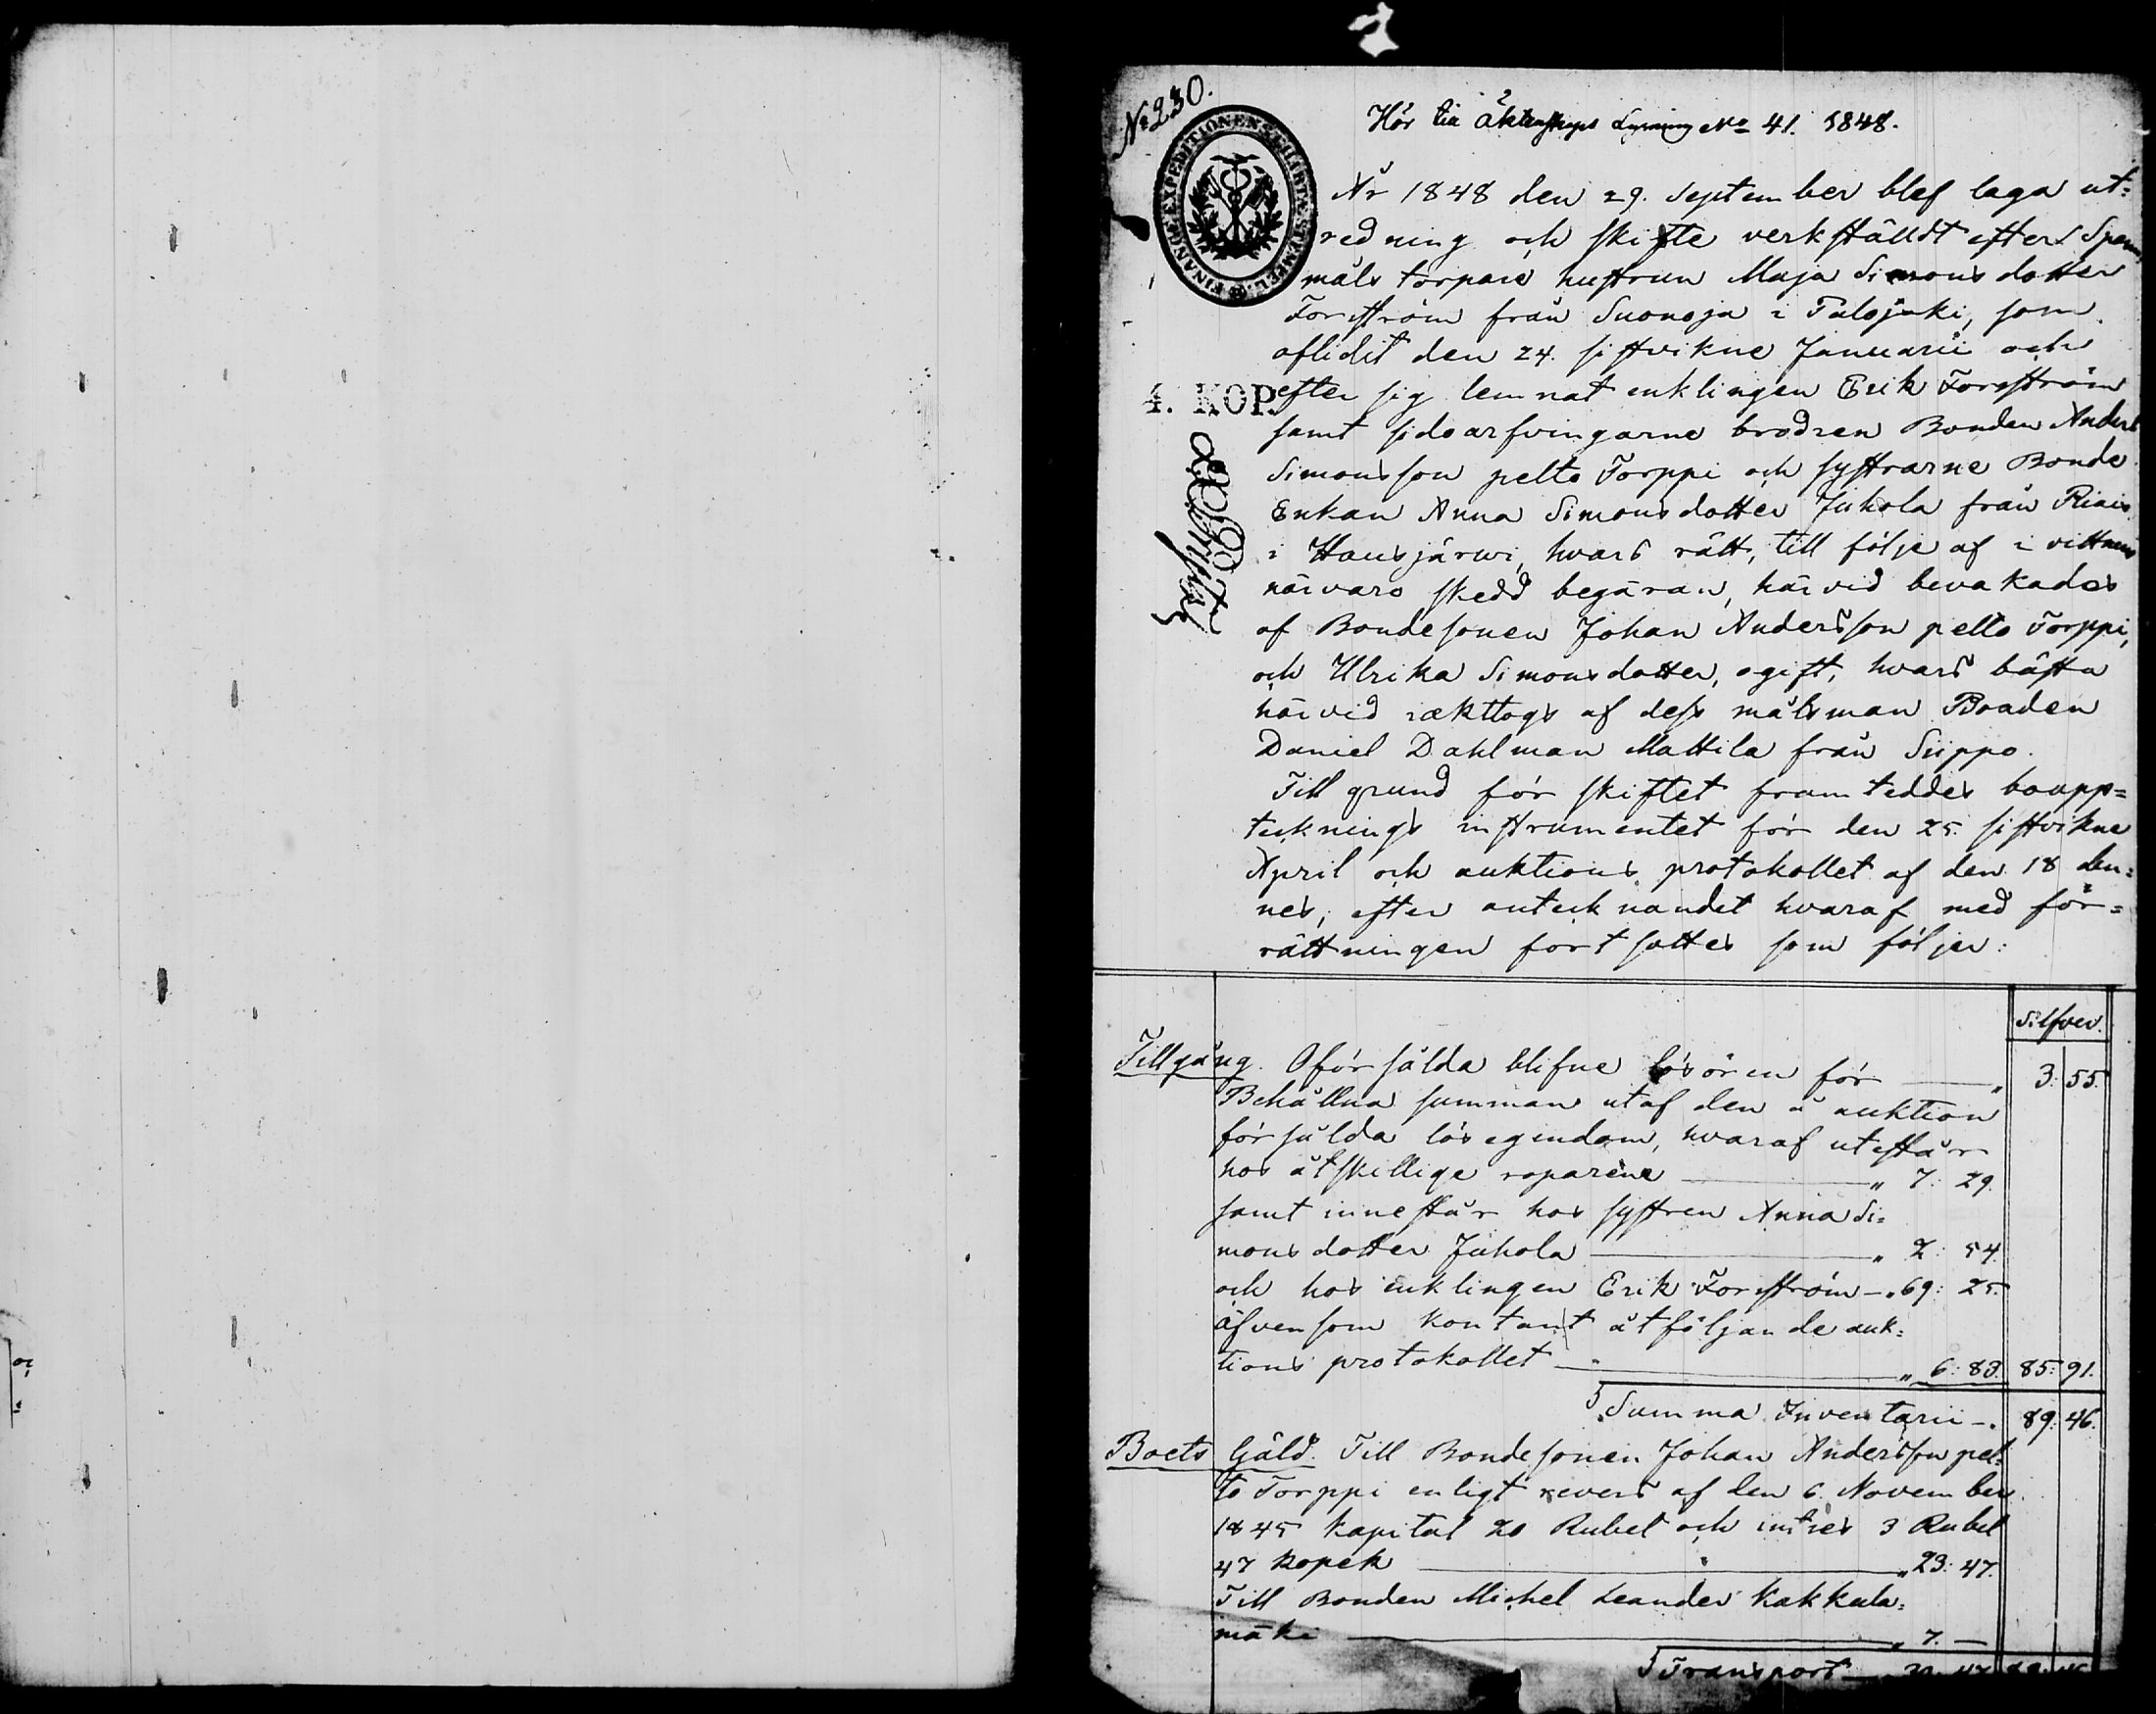 No 230.
Hör till äktenskaps Lysning No 41. 1848.
FINANCE-EXPEDITIONENS CHARTÆ STEMPEL
År 1848 den 29. September blef laga ut=
redning och skifte verkstäldt efter Spann
måls torpare hustrun Maja Simons dotter
Forsström från Suonoja i Tulojoki, som
aflidit den 24. sistvikne Januarii och
4. KOP.
efter sig lemnat enklingen Erik Forsström
samt sidoarfvingarne brodren Bonden Anders
Simonsson pelto Torppi och systrarne Bonde
Enkan Anna Simonsdotter Juhola från Riais
i Hausjärwi, hvars rätt, till följe af i vittnens
närvaro skedd begäran, härvid bevakades
af Bondesonen Johan Andersson pelto Torppi,
och Ulrika Simonsdotter, ogift, hvars bästa
härvid iakttogs af dess målsman Bonden
Daniel Dahlman Mattila från Siippo.
Till grund för skiftet framteddes boupp=
tecknings instrumentet för den 25. sistvikne
April och auktions protokollet af den 18 den=
nes, efter antecknandet hvaraf med för=
rättningen fortsattes som följer:
Silfver.
Tillgång. Oförsålda blifne lösören för — " 3: 55.
Behållna summan utaf den å auktion
försålda lösegendom, hvaraf utestår
hos åtskillige roparene — " 7: 29.
samt innestår hos systren Anna Si=
monsdotter Juhola — " 2: 54.
och hos enklingen Erik Forsström — " 69: 25.
äfvensom kontant åtföljande auk=
tions protokollet — " 6: 83. 85: 91.
Summa Inventarii — " 89: 46.
Boets Gäld. Till Bondesonen Johan Andersson pel=
to Torppi enligt revers af den 6. November
1845 kapital 20 Rubel och intres 3 Rubel
47 kopek — " 23: 47.
Till Bonden Michel Leander Kakkula=
mäki — " 7. —
Transport —